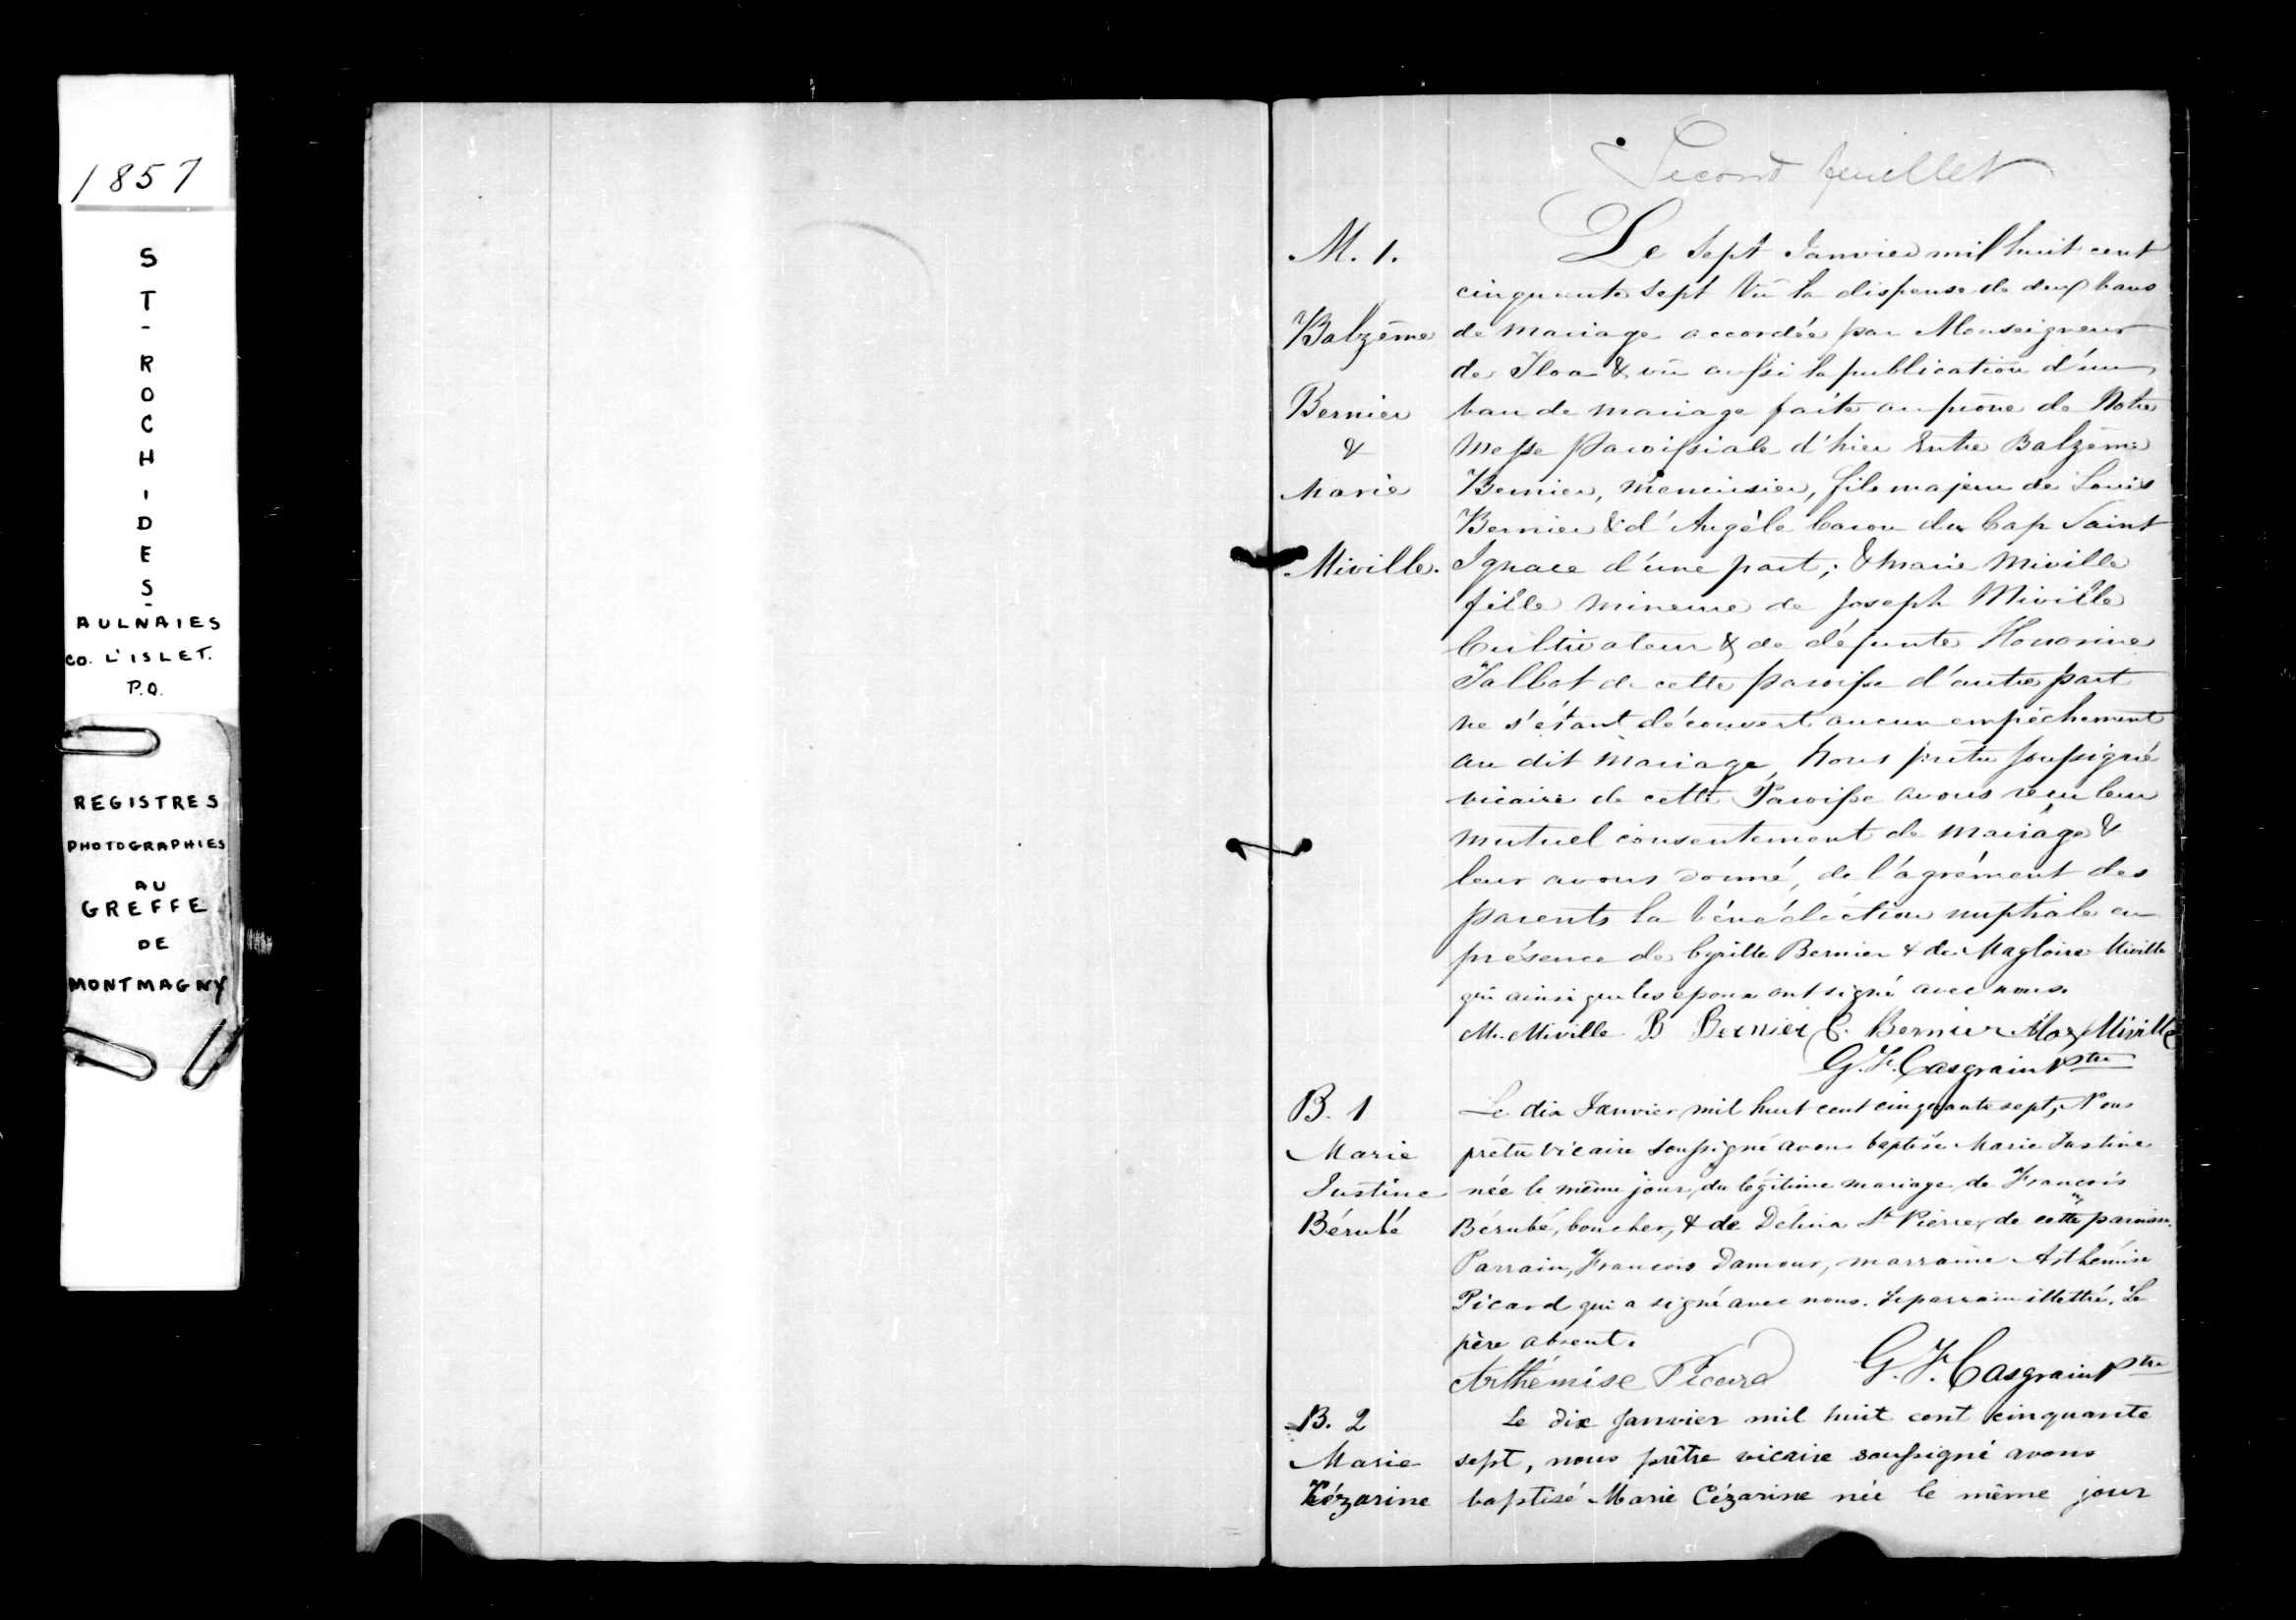 1857
S
T
-
R
O
C
H
-
D
E
S
-
AULNAIES
CO. L'ISLET.
P.Q.
REGISTRES
PHOTOGRAPHIES
AU
GREFFE
DE
MONTMAGNY
Second feuillet
M. 1.
Balzéme
Bernier
&
Marie
Miville.
Le Sept Janvier mil huit cent
cinquante sept Vû la dispense de deux bans
de mariage accordée par Monseigneur
de Tloa & vû aussi la publication d'un
ban de mariage faite au prône de Notre
Messe Paroissiale d'hier Entre Balzéme
Bernier, menuisier, fils majeur de Louis
Bernier & d'Angèle Caron du Cap Saint
Ignace d'une part; & Marie Miville
fille mineure de Joseph Miville
Cultivateur & de défunte Honorine
Talbot de cette paroisse d'autre part
ne s'étant découvert aucun empêchement
au dit mariage, Nous prêtre soussigné
vicaire de cette Paroisse avons reçu leur
mutuel consentement de mariage &
leur avons donné, de l'agrément des
parents la bénédiction nuptiale en
présence de Cyrille Bernier & de Magloire Miville
qui ainsi que les epoux ont signé avec nous.
M. Miville B Bernier C. Bernier Mag Miville
G. F. Casgrain Ptre
B. 1
Marie
Justine
Bérubé
Le dix Janvier mil huit cent cinquante sept, Nous
prêtre vicaire soussigné avons baptisé Marie Justine
née le même jour, du légitime mariage de François
Bérubé, boucher, & de Délina St Pierre, de cette paroisse.
Parrain, François Damour, marraine Arthémise
Picard qui a signé avec nous. Le parrain illettré. Le
père absent.
Arthémise Picard G. F. Casgrain Ptre
B. 2
Marie
Cézarine
Le dix Janvier mil huit cent cinquante
sept, nous prêtre vicaire soussigné avons
baptisé Marie Cézarine née le même jour